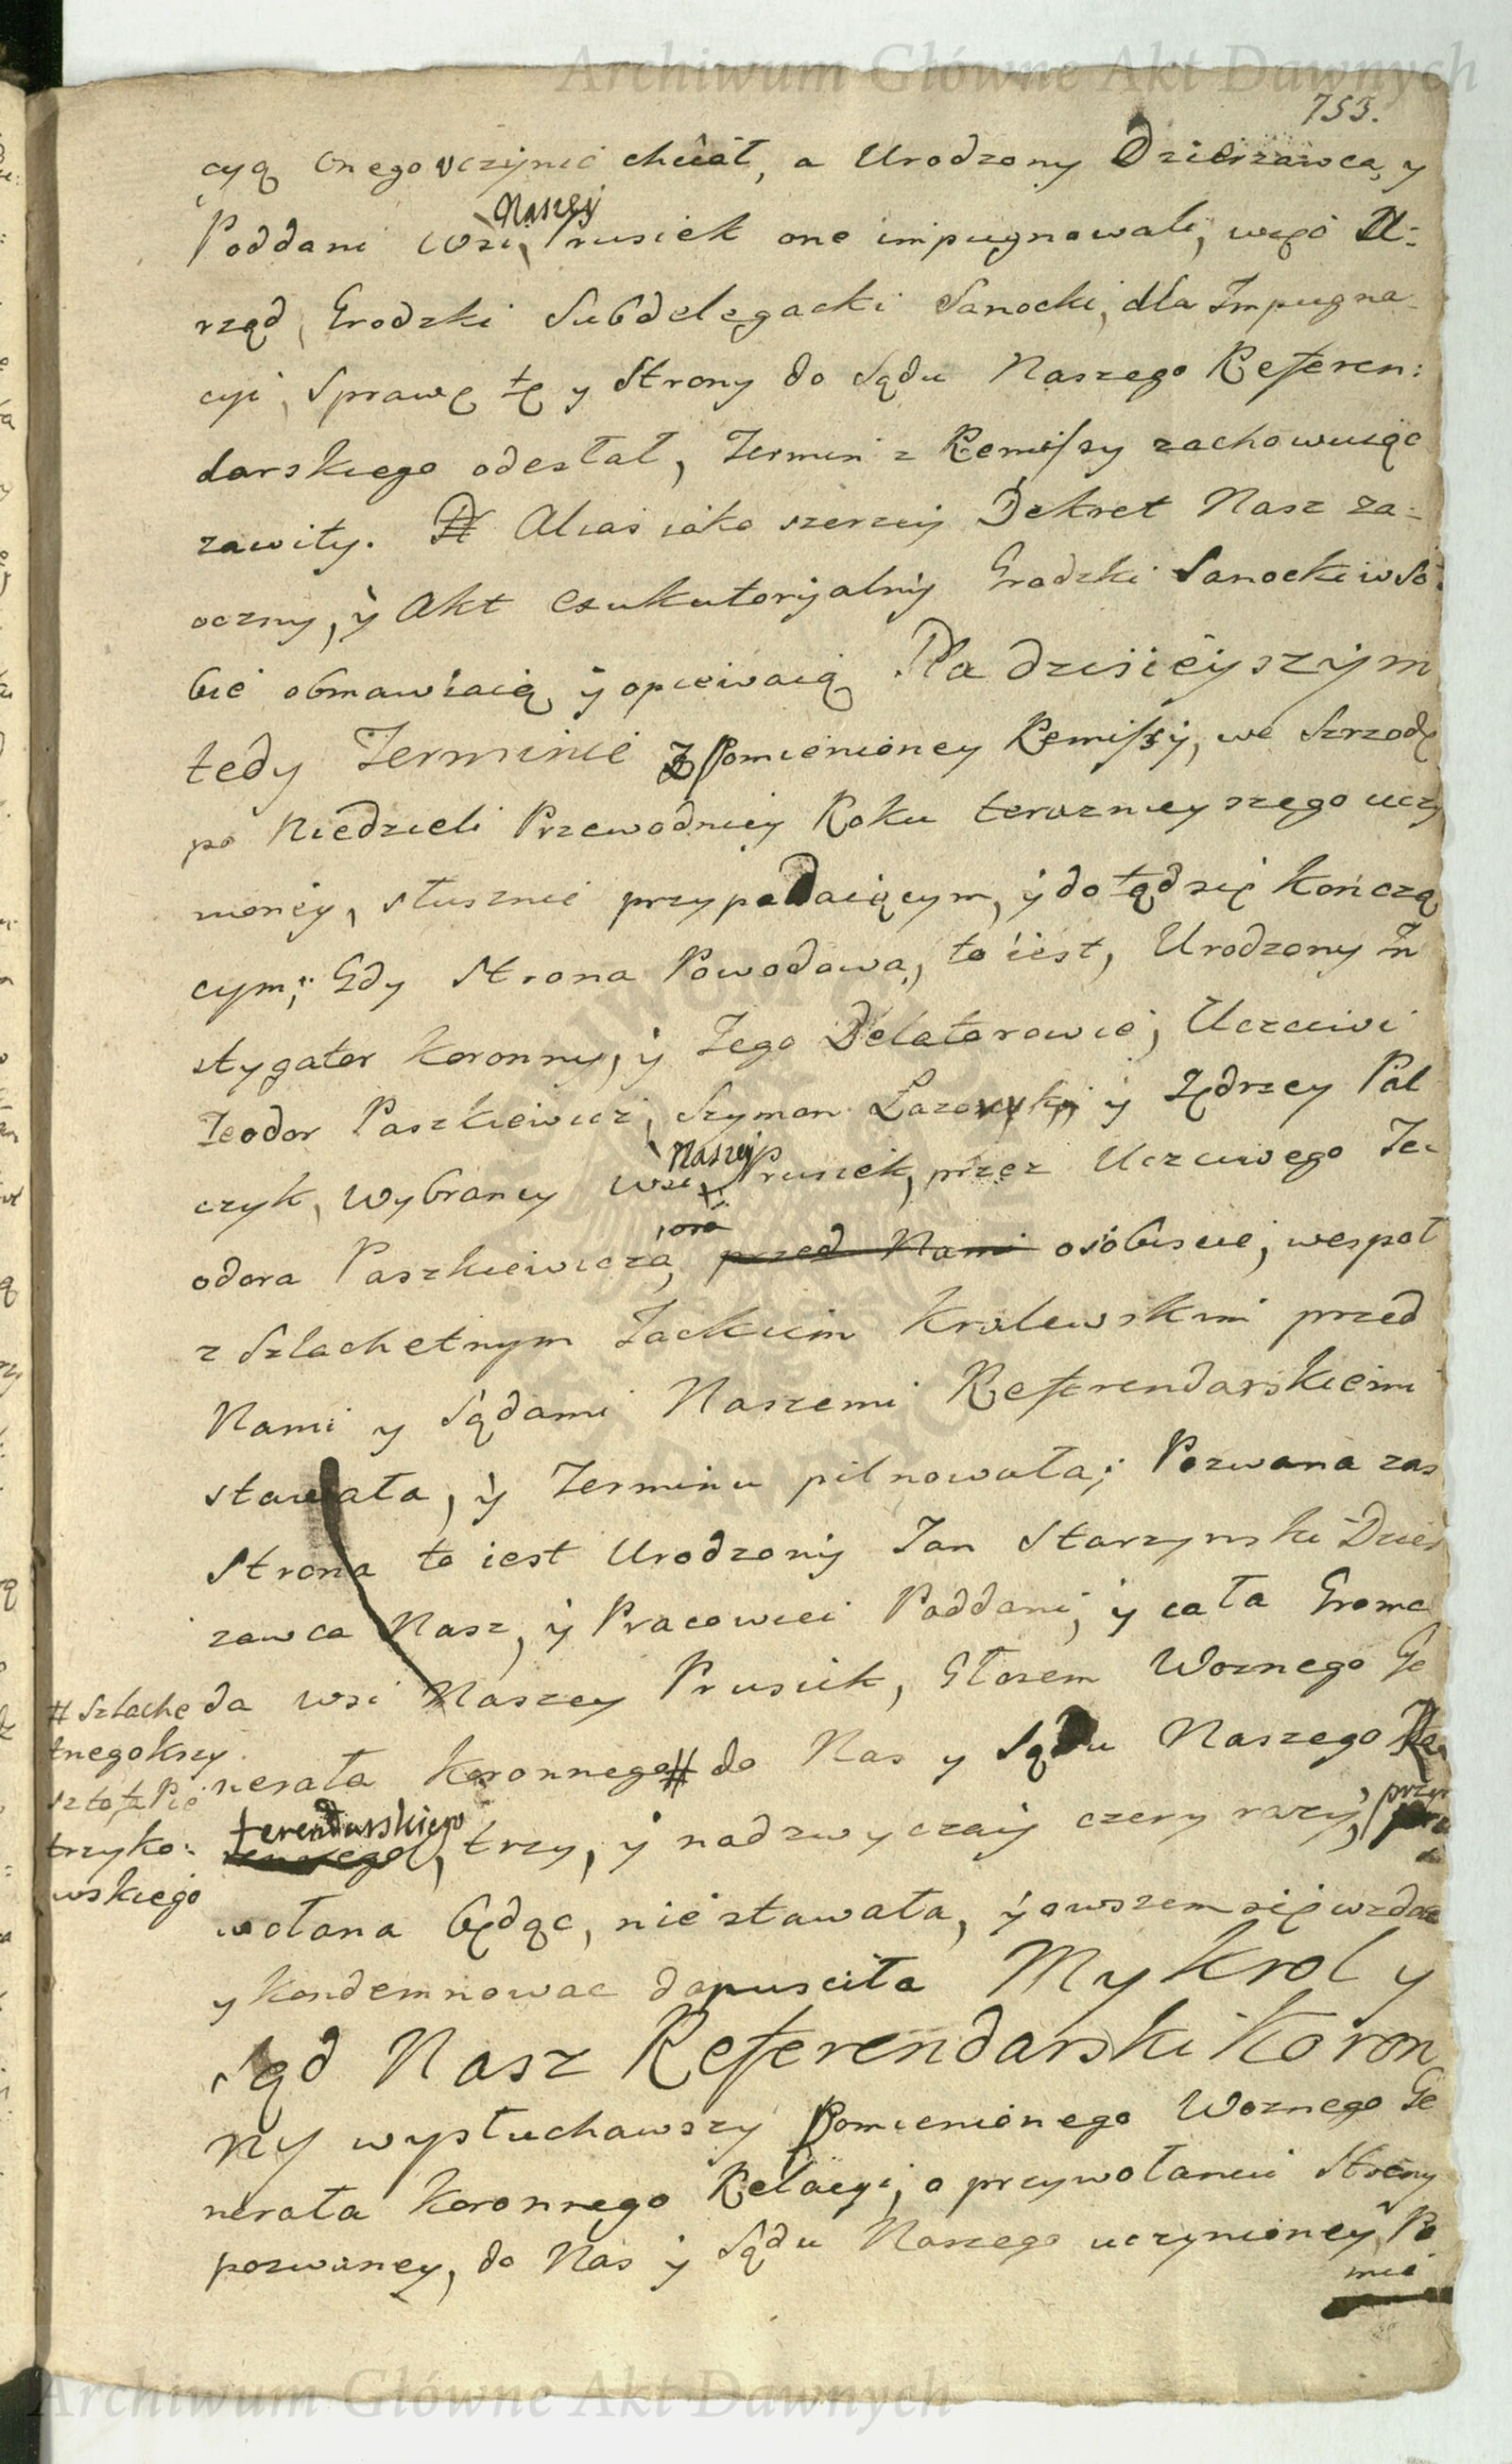 Archiwum Główne Akt Dawnych
753.
cyą onego uczynic chciał, a Urodzony Dzierzawca, y
Naszey
Poddani wsi Prusiek one impugnowali, więc U:
rząd Grodzki Subdelegacki Sanocki, dla Impugna
cyi, Sprawę tę y Strony do Sądu Naszego Referen:
darskiego odesłał, Termin z Remissy zachowuiąc
zawity. Alias iako szerzey Dekret Nasz za=
oczny, y Akt Exekutoryalny Grodzki Sanocki w so
bie obmawiaią y opiewaią. Na dzisieyszym
tedy Terminie z Pomienioney Remissy, we Srzodę
po Niedzieli Przewodniey Roku teraznieyszego uczy
nioney, słusznie przypadaiącym, y dotąd się kończą
cym; Gdy Strona Powodowa, to iest, Urodzony In
stygator Koronny, y Jego Delatorowie, Uczciwi
Teodor Paszkiewicz, Szymon Lazowski y Jędrzey Pal
Naszey
czyk, Wybrancy wsi Prusiek, przez Uczciwego Te
odora Paszkiewicza, przed Nami osobiscie, wespoł
z Szlachetnym Jackiem Krolewskim przed
Nami y Sądami Naszemi Referendarskiemi
stawała, y Terminu pilnowała; Pozwana zas
Strona to iest Urodzony Jan Starzynski Dzier
zawca Nasz, y Pracowici Poddani, y cała Groma
da wsi Naszey Prusiek, Głosem Woznego Ge
nerała Koronnego # do Nas y Sądu Naszego Re
# Szlache
tnego Krzy
sztofa Pie
trzyko:
wskiego
ferendarskiego, trzy, y nadzwyczaiy czery razy, przy
wołana będąc, nie stawała, y owszem się wzdac
y kondemnowac dopusciła My Krol y
Sąd Nasz Referendarski Koron
ny wysłuchawszy Pomienionego Woznego Ge
nerała Koronnego Relacyi, o przywołaniu Strony
pozwaney, do Nas y Sądu Naszego uczynioney, Po
mie
Archiwum Główne Akt Dawnych